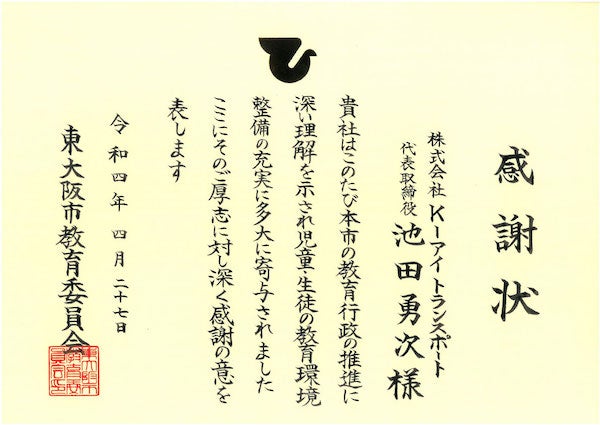 感謝状
株式会社 Kーアイトランスポート
代表取締役 池田勇次様
貴社はこのたび本市の教育行政の推進に
深い理解を示され児童・生徒の教育環境
整備の充実に多大に寄与されました
ここにそのご厚志に対し深く感謝の意を
表します
令和四年四月二十七日
東大阪市教育委員会